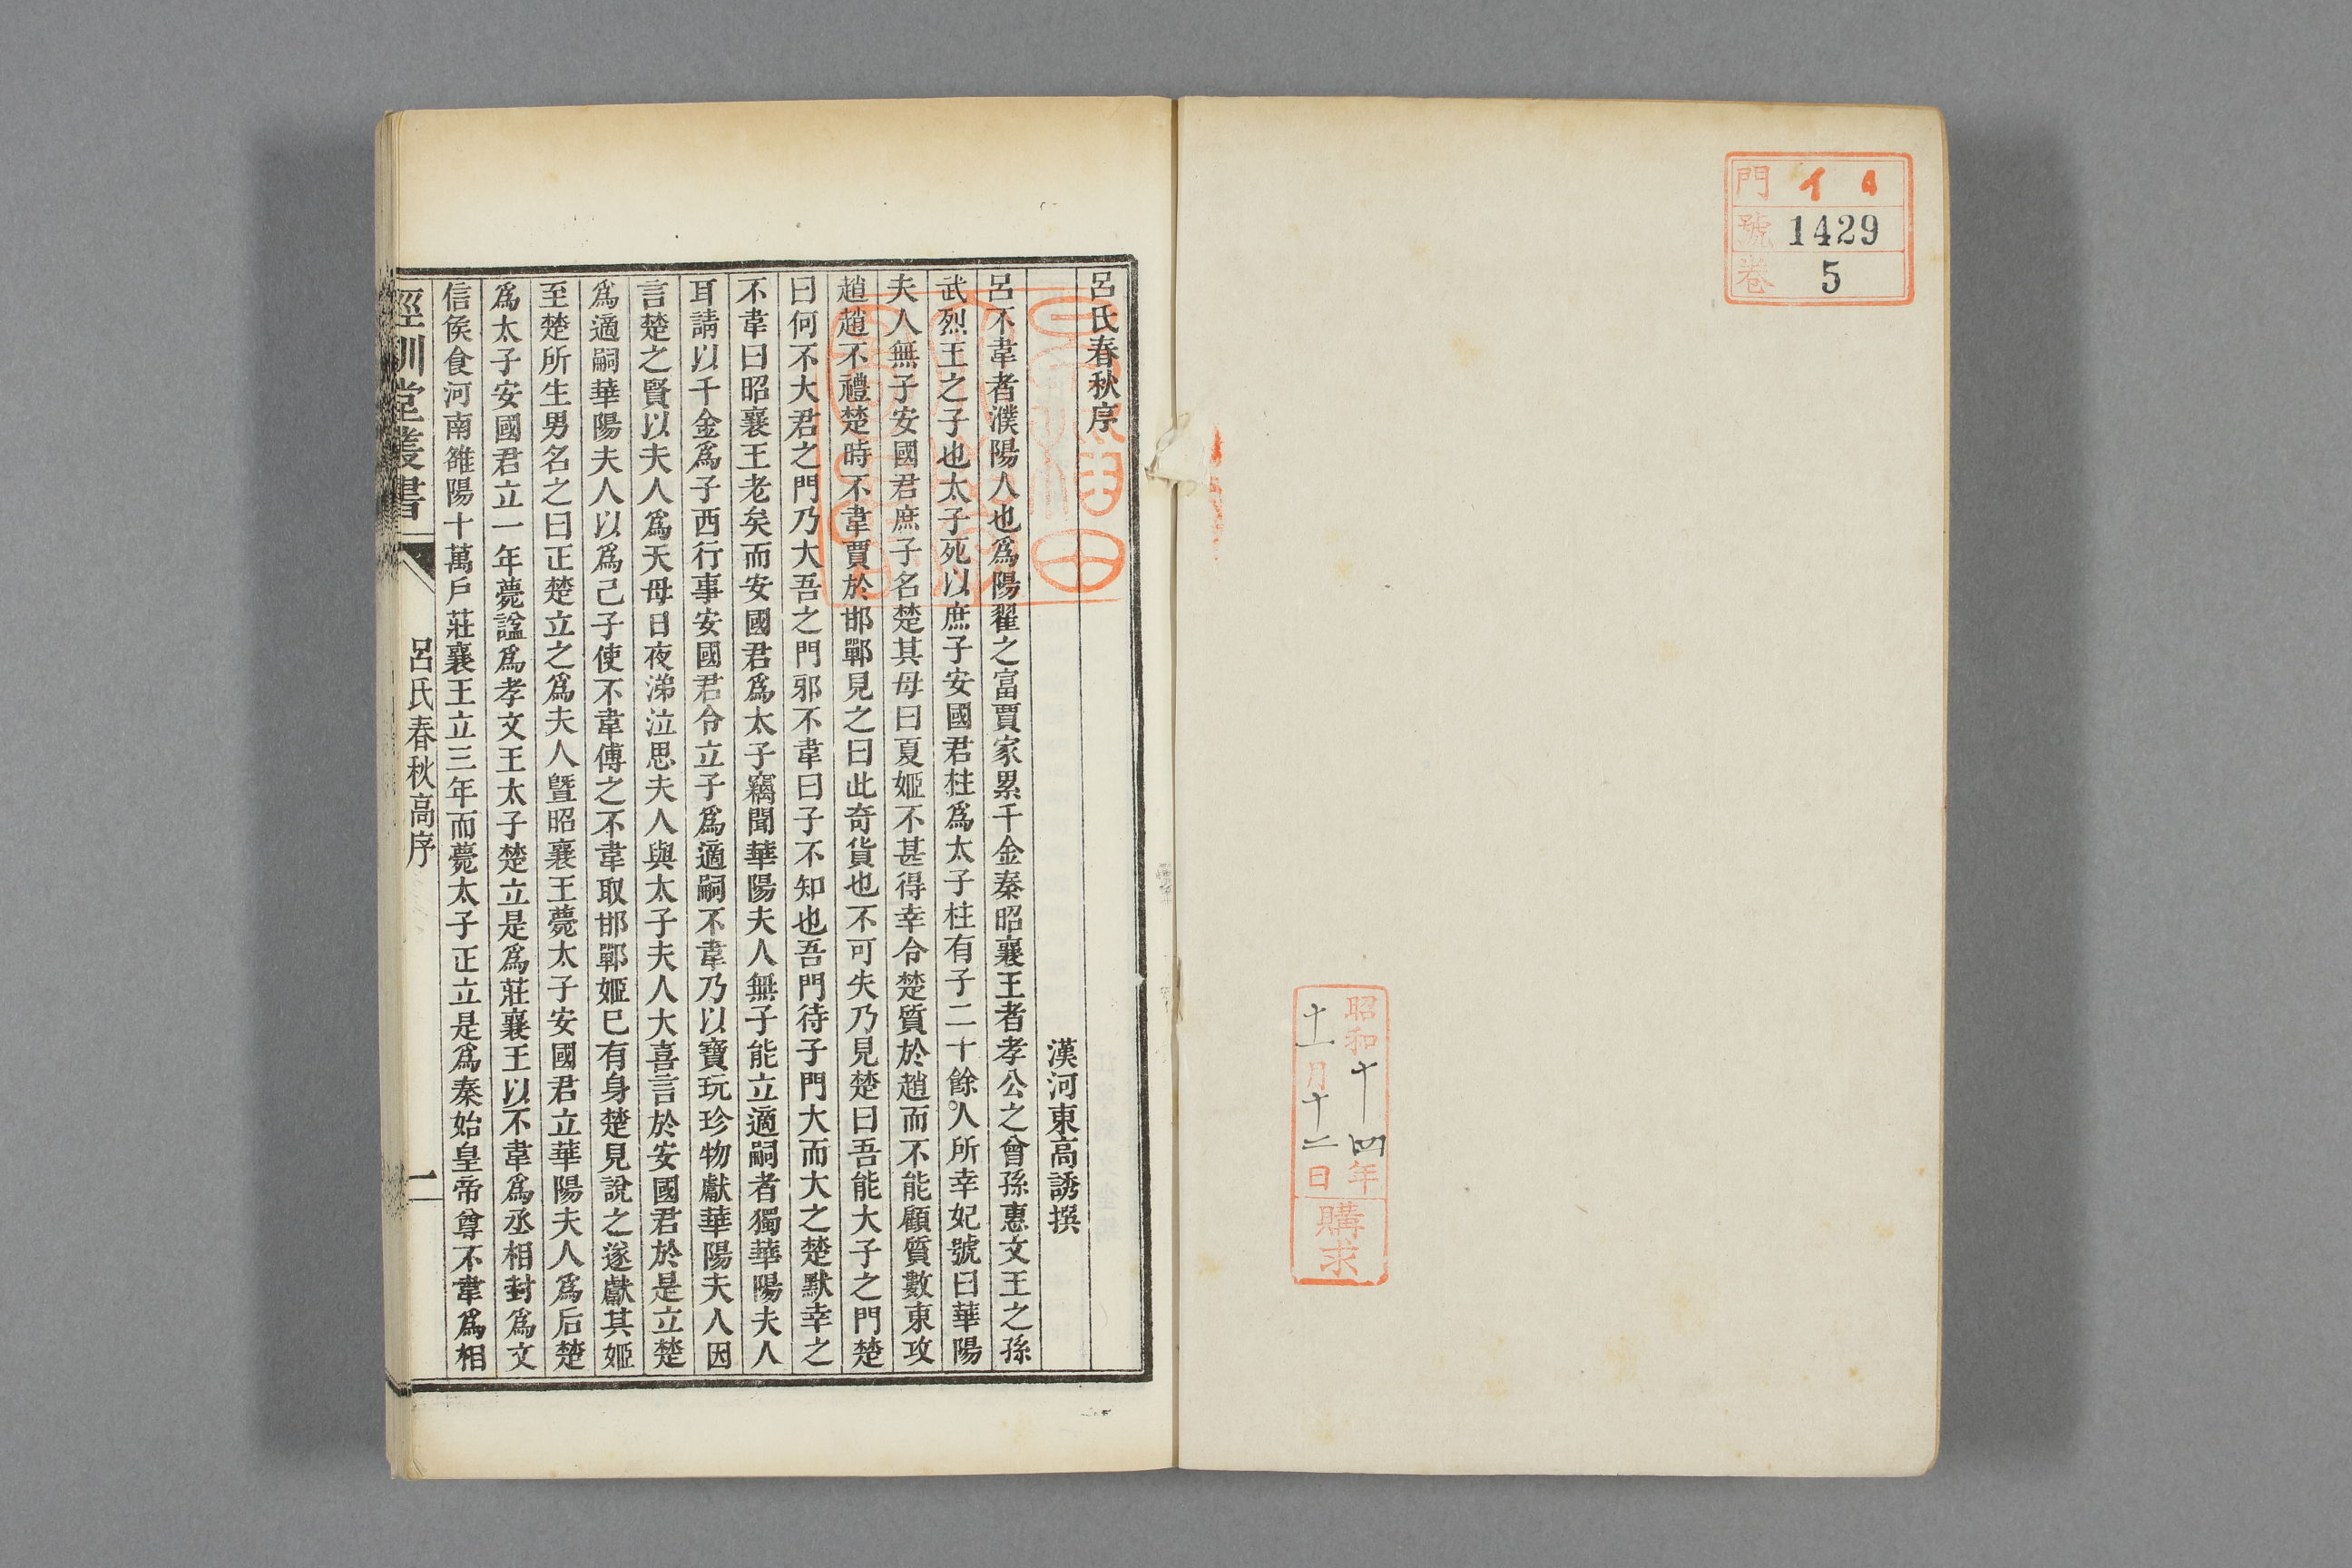 門 イ 4
號 1429
卷 5
昭和十四年
十一月十二日
購求
呂氏春秋序
漢河東高誘撰
呂不韋者濮陽人也爲陽翟之富賈家累千金秦昭襄王者孝公之曾孫惠文王之孫
武烈王之子也太子死以庶子安國君柱爲太子柱有子二十餘人所幸妃號曰華陽
夫人無子安國君庶子名楚其母曰夏姬不甚得幸令楚質於趙而不能顧質數東攻
趙趙不禮楚時不韋賈於邯鄲見之曰此奇貨也不可失乃見楚曰吾能大子之門楚
曰何不大君之門乃大吾之門邪不韋曰子不知也吾門待子門大而大之楚默幸之
不韋曰昭襄王老矣而安國君爲太子竊聞華陽夫人無子能立適嗣者獨華陽夫人
耳請以千金爲子西行事安國君令立子爲適嗣不韋乃以寶玩珍物獻華陽夫人因
言楚之賢以夫人爲天母日夜涕泣思夫人與太子夫人大喜言於安國君於是立楚
爲適嗣華陽夫人以爲己子使不韋傅之不韋取邯鄲姬已有身楚見說之遂獻其姬
至楚所生男名之曰正楚立之爲夫人暨昭襄王薨太子安國君立華陽夫人爲后楚
爲太子安國君立一年薨諡爲孝文王太子楚立是爲莊襄王以不韋爲丞相封爲文
信侯食河南雒陽十萬戶莊襄王立三年而薨太子正立是爲秦始皇帝尊不韋爲相
經訓堂叢書
呂氏春秋高序
一